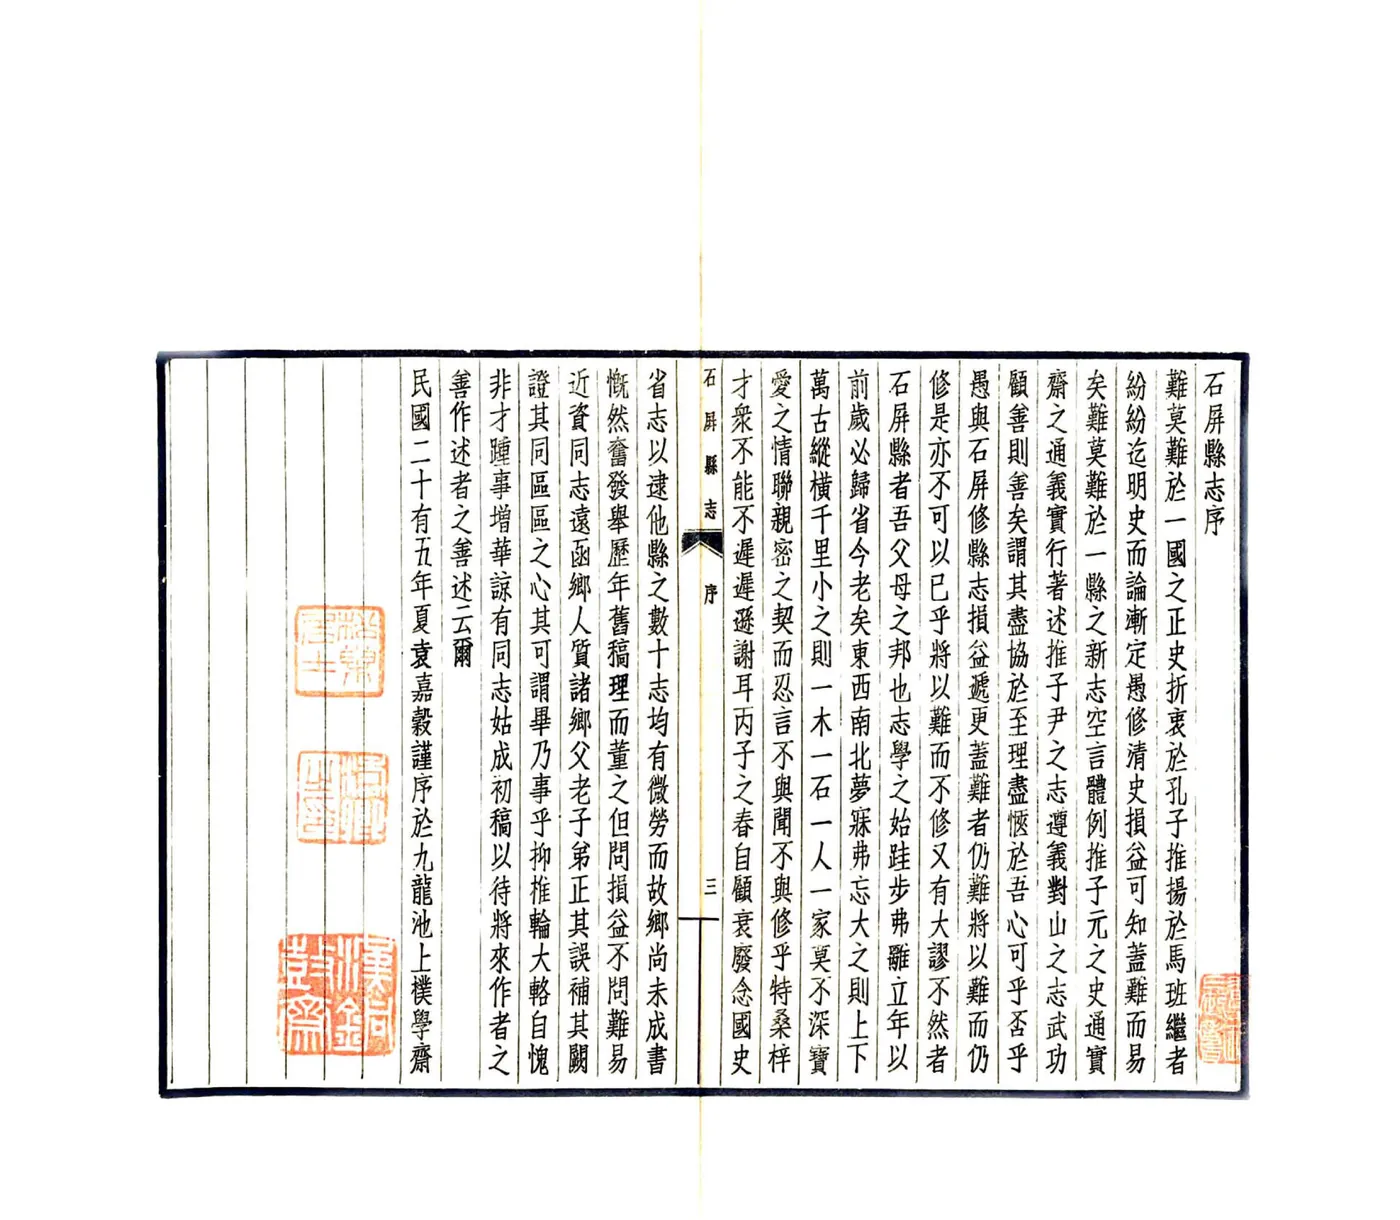 石屏縣志序
難莫難於一國之正史折衷於孔子推揚於馬班繼者
紛紛迄明史而論漸定愚修清史損益可知蓋難而易
矣難莫難於一縣之新志空言體例推子元之史通實
齋之通義實行著述推子尹之志遵義對山之志武功
顧善則善矣謂其盡協於至理盡愜於吾心可乎否乎
愚與石屏修縣志損益遞更蓋難者仍難將以難而仍
修是亦不可以已乎將以難而不修又有大謬不然者
石屏縣者吾父母之邦也志學之始跬步弗離立年以
前歲必歸省今老矣東西南北夢寐弗忘大之則上下
萬古縱橫千里小之則一木一石一人一家莫不深寶
愛之情聯親密之契而忍言不與聞不與修乎特桑梓
才衆不能不遲遲遜謝耳丙子之春自顧衰廢念國史
石屏縣志
序
三
省志以逮他縣之數十志均有微勞而故鄉尚未成書
慨然奮發舉歷年舊稿理而董之但問損益不問難易
近資同志遠函鄉人質諸鄉父老子弟正其誤補其闕
證其同區區之心其可謂畢乃事乎抑椎輪大輅自愧
非才踵事增華諒有同志姑成初稿以待將來作者之
善作述者之善述云爾
民國二十有五年夏袁嘉穀謹序於九龍池上樸學齋
漢銅鼓齋